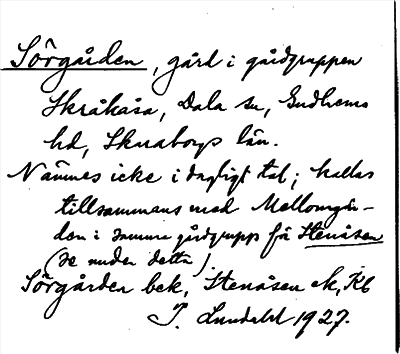 Sörgården, gård i gårdgruppen
Skråkåsa, Dala sn, Gudhems
hd, Skaraborgs län.
Nämnes icke i dagligt tal; kallas
tillsammans med Mellomgår-
den i samma gårdgrupp för Stenåsen
(se under detta)
Sörgården bek, Stenåsen ek, Kb
T. Lundahl 1927.